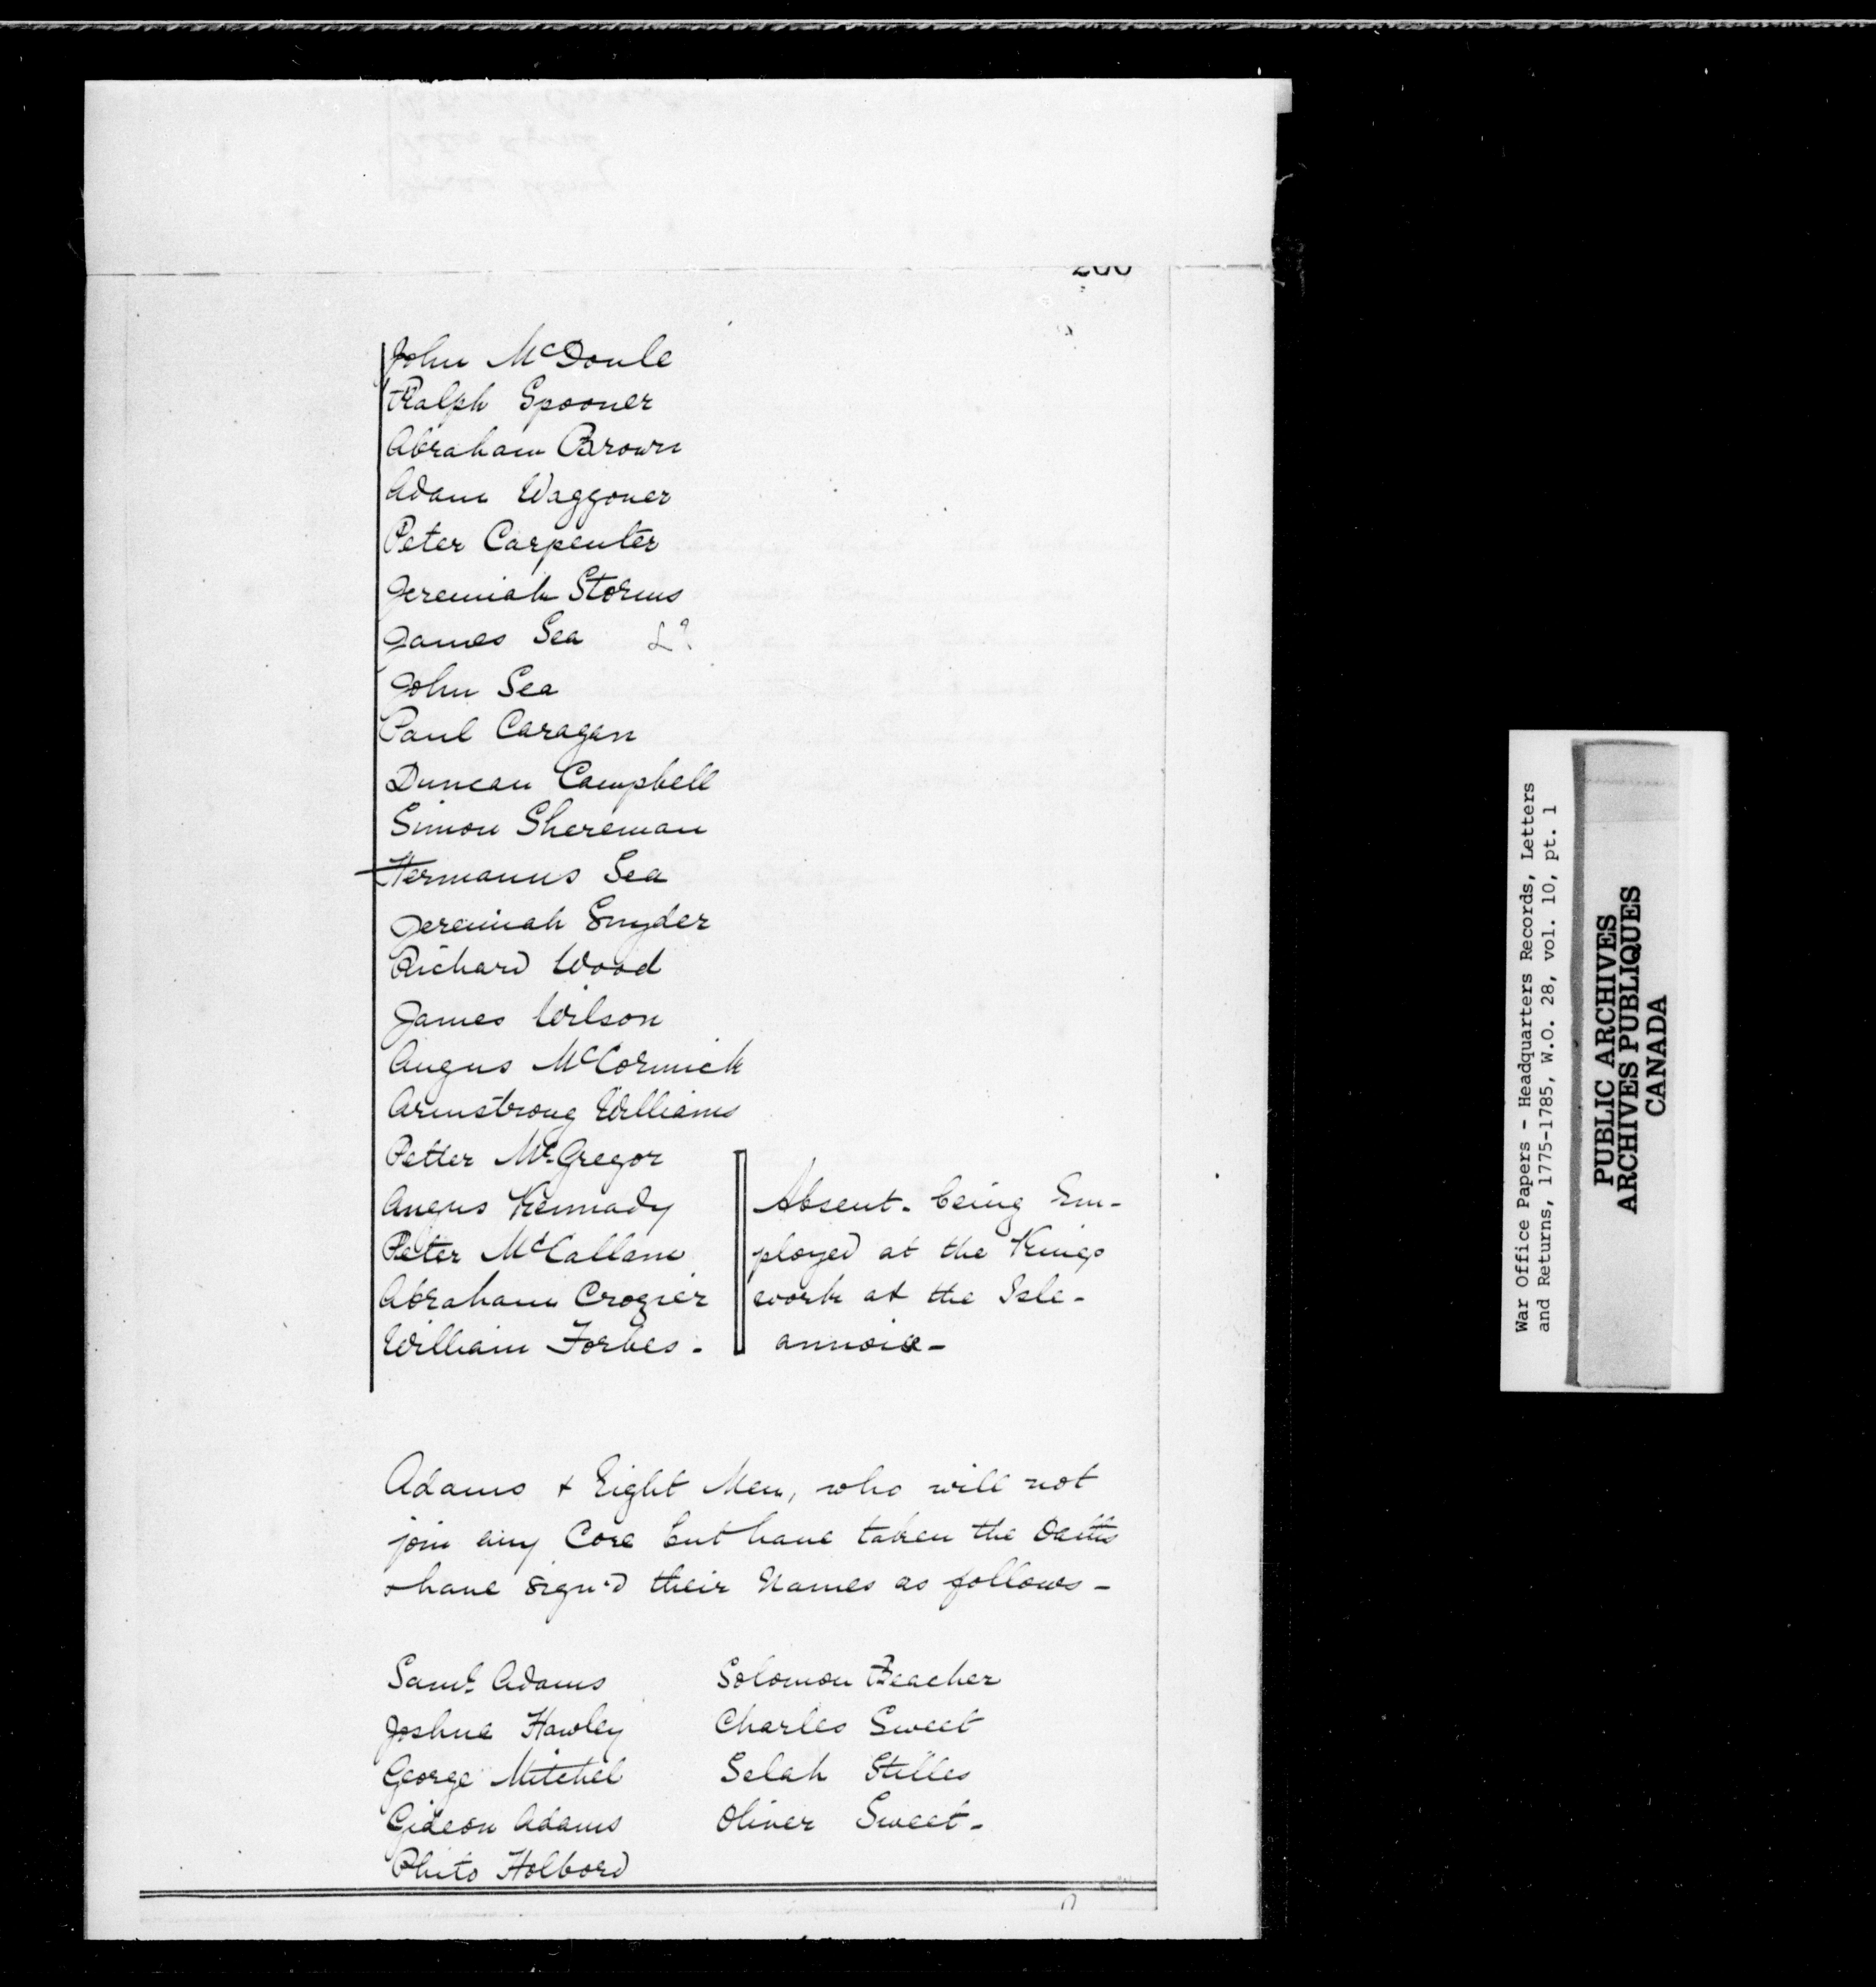 John McDoule
Ralph Spooner
Abraham Brown
Adam Waggoner
Peter Carpenter
Jeremiah Storms
James Sea L?
John Sea
Paul Caragan
Duncan Campbell
Simon Shereman
Hermanus Sea
Jeremiah Snyder
Richard Wood
James Wilson
Angus McCormick
Armstrong Williams
Petter McGregor
Angus Kennady
Peter McCallam
Abraham Crozier
William Forbes.
Absent. being Em-
ployed at the Kings
work at the Isle-
annoix-
Adams + Eight Men, who will not
join any Core but have taken the Oaths
+ have sign'd their Names as follows-
Saml. Adams Solomon Beacher
Joshua Hawley Charles Sweet
George Mitchel Selah Stilles
Gideon Adams Oliver Sweet-
Philo Holbord
War Office Papers - Headquarters Records, Letters
and Returns, 1775-1785, W.O. 28, vol. 10, pt. 1
PUBLIC ARCHIVES
ARCHIVES PUBLIQUES
CANADA